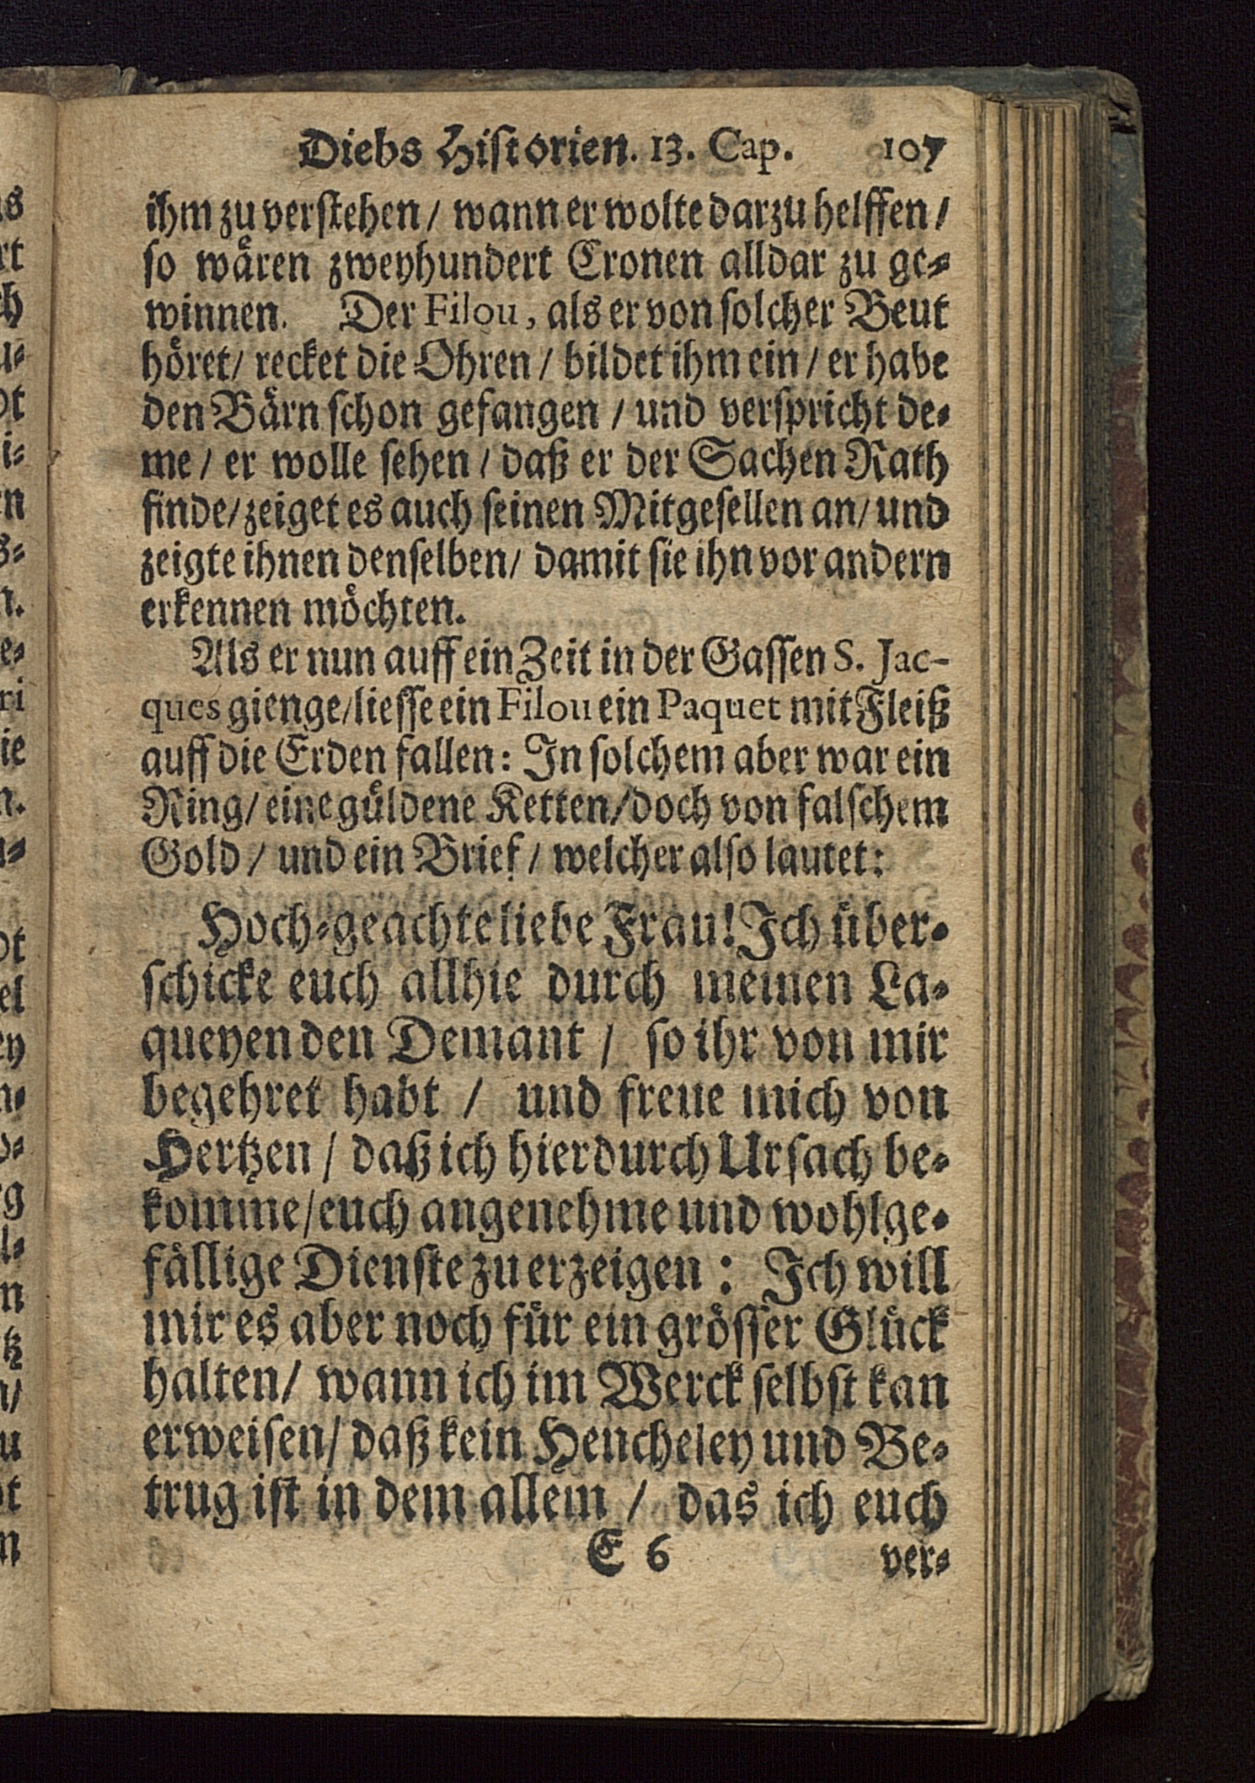 Diebs Historien. 13. Cap. 107
ihm zu verstehen / wann er wolte darzu helffen /
so wären zweyhundert Cronen alldar zu ge-
winnen. Der Filou, als er von solcher Beut
höret / recket die Ohren / bildet ihm ein / er habe
den Bärn schon gefangen / und verspricht de-
me / er wolle sehen / daß er der Sachen Rath
finde / zeiget es auch seinen Mitgesellen an / und
zeigte ihnen denselben / damit sie ihn vor andern
erkennen möchten.
Als er nun auff ein Zeit in der Gassen S. Jac-
ques gienge / liesse ein Filou ein Paquet mit Fleiß
auff die Erden fallen: In solchem aber war ein
Ring / eine güldene Ketten / doch von falschem
Gold / und ein Brief / welcher also lautet:
Hoch-geachte liebe Frau! Ich über-
schicke euch allhie durch meinen La-
queyen den Demant / so ihr von mir
begehret habt / und freue mich von
Hertzen / daß ich hierdurch Ursach be-
komme / euch angenehme und wohlge-
fällige Dienste zu erzeigen: Ich will
mir es aber noch für ein grösser Glück
halten / wann ich im Werck selbst kan
erweisen / daß kein Heucheley und Be-
trug ist in dem allem / das ich euch
E 6 ver-